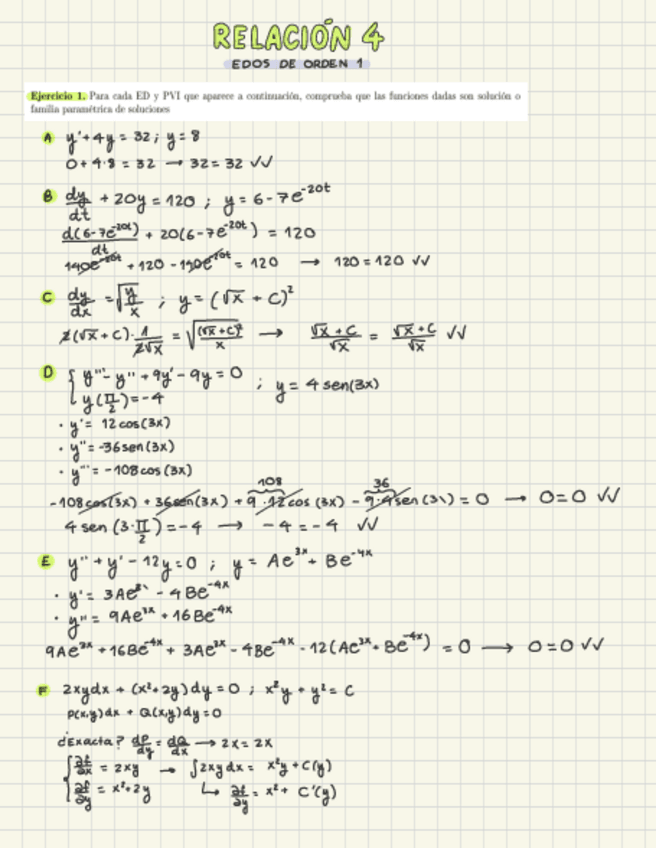 RELACIÓN 4
EDOS DE ORDEN 1
Ejercicio 1. Para cada ED y PVI que aparece a continuación, comprueba que las funciones dadas son solución o
familia paramétrica de soluciones
A y' + 4y = 32 ; y = 8
0 + 4·8 = 32 → 32 = 32 √√
B dy/dt + 20y = 120 ; y = 6 - 7e^-20t
d(6-7e^-20t)/dt + 20(6 - 7e^-20t) = 120
140e^-20t + 120 - 140e^-20t = 120 → 120 = 120 √√
C dy/dx = √(y/x) ; y = (√x + C)²
2(√x + C)·1/(2√x) = √((√x+C)²/x) → (√x + C)/√x = (√x + C)/√x √√
D { y''' - y'' + 9y' - 9y = 0 ; y = 4 sen(3x)
y(π/2) = -4
· y' = 12cos(3x)
· y'' = -36sen(3x)
· y''' = -108cos(3x)
108 36
-108cos(3x) + 36sen(3x) + 9·12cos(3x) - 9·4sen(3x) = 0 → 0=0 √√
4 sen(3·π/2) = -4 → -4 = -4 √√
E y'' + y' - 12y = 0 ; y = Ae^3x + Be^-4x
· y' = 3Ae^3x - 4Be^-4x
· y'' = 9Ae^3x + 16Be^-4x
9Ae^3x + 16Be^-4x + 3Ae^3x - 4Be^-4x - 12(Ae^3x + Be^-4x) = 0 → 0=0 √√
F 2xydx + (x²+2y)dy = 0 ; x²y + y² = C
P(x,y)dx + Q(x,y)dy = 0
¿Exacta? dP/dy = dQ/dx → 2x = 2x
{ ∂f/∂x = 2xy → ∫2xydx = x²y + C(y)
∂f/∂y = x²+2y ↳ ∂f/∂y = x² + C'(y)